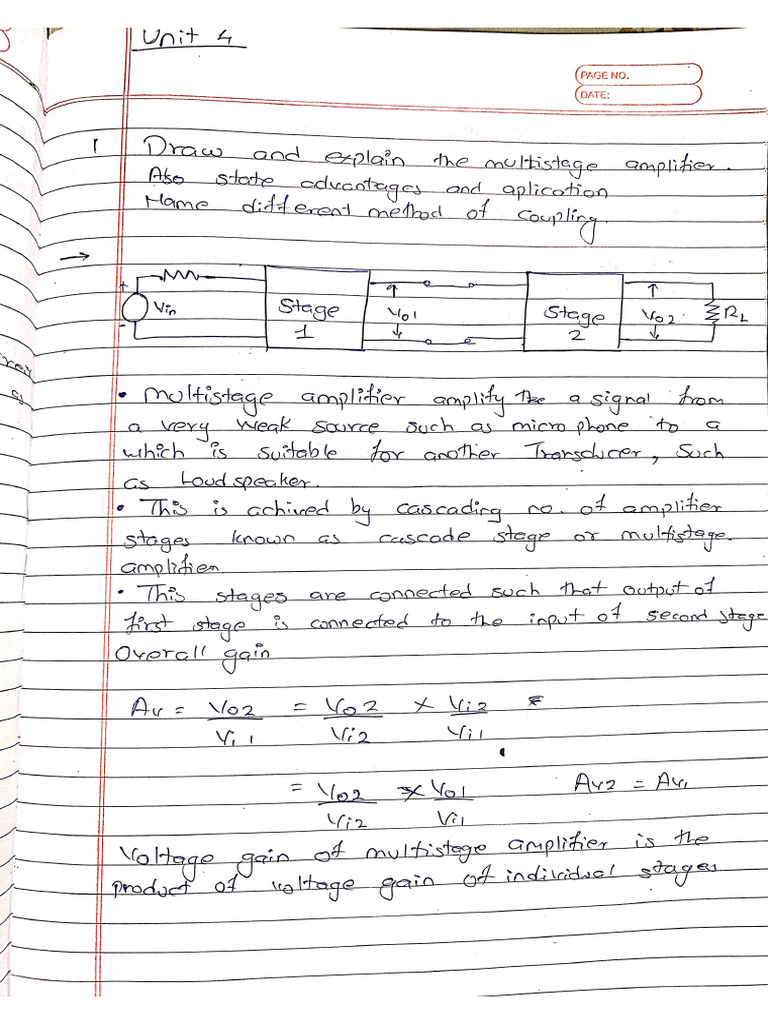 Unit 4
PAGE NO.
DATE:
1 Draw and explain the multistage amplifier.
Also state advantages and aplication
Name different method of coupling.
→
+ Vin -
Stage 1
Vo1
Stage 2
Vo2
RL
• multistage amplifier amplify the a signal from
a very weak source such as microphone to a
which is suitable for another Transducer, such
as Loudspeaker.
• This is achived by cascading no. of amplifier
stages known as cascade stage or multistage
amplifier.
• This stages are connected such that output of
first stage is connected to the input of second stage
Overall gain
Av = Vo2 / Vi1 = Vo2 / Vi2 × Vi2 / Vi1
= Vo2 / Vi2 × Vo1 / Vi1 Av2 = Av1
Voltage gain of multistage amplifier is the
product of voltage gain of individual stages